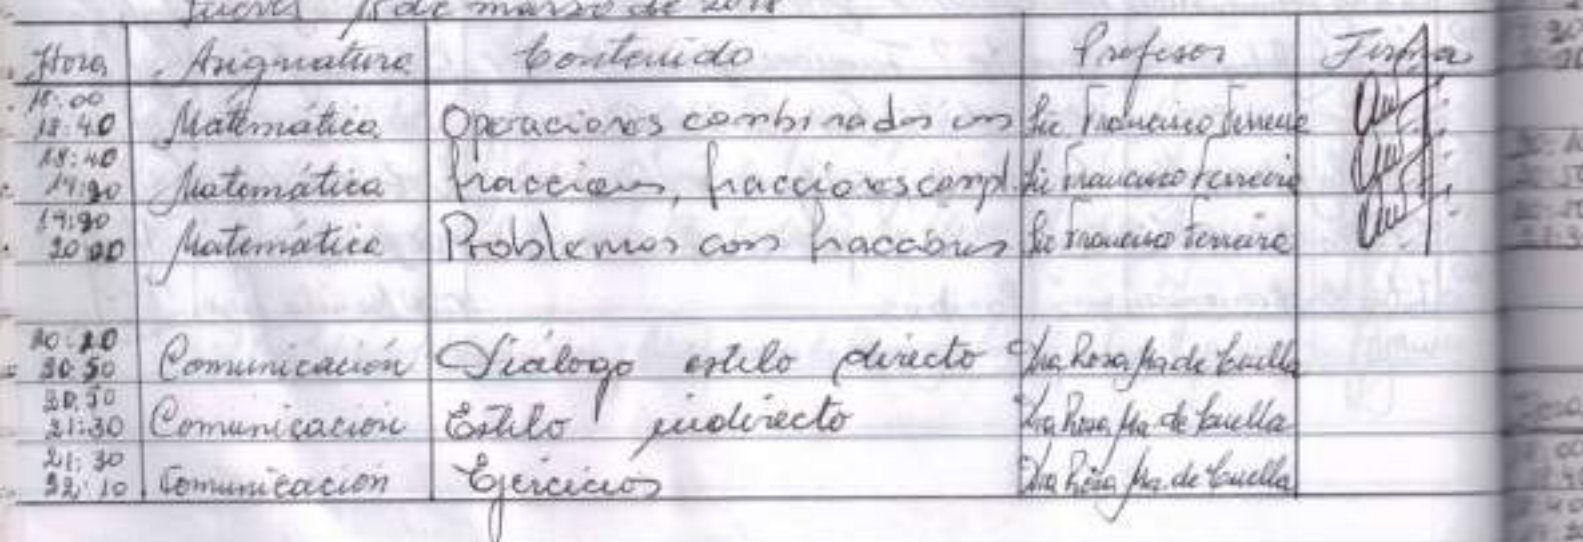 Jueves 15 de marzo de 2018
Hora Asignatura Contenido Profesor Firma
18:00
18:40 Matemática Operaciones combinadas con Lic Francisco Ferreira
18:40
19:20 Matemática fracciones, fracciones compl. Lic Francisco Ferreira
19:20
20:00 Matemática Problemas con fracciones Lic Francisco Ferreira
20:10
20:50 Comunicación Diálogo estilo directo Rosa de
20:50
21:30 Comunicación Estilo indirecto Rosa de
21:30
22:10 Comunicación Ejercicios Rosa de